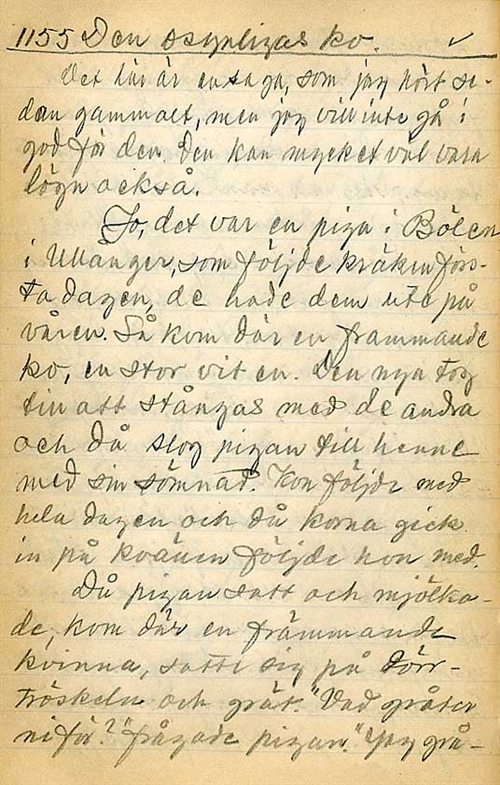 1155 Den osynligas ko. ✓
Det här är en saga, som jag hört se-
dan gammalt, men jag vill inte gå i
god för den. Den kan mycket väl vara
lögn också.
Jo, det var en piga i Bölen
i Ullånger, som följde kräken förs-
ta dagen, de hade dem ute på
våren. Så kom där en frammande
ko, en stor vit en. Den nya tog
till att stångas med de andra
och då slog pigan till henne
med sin sömnad. Kon följde med
hela dagen och då korna gick
in på kvällen följde hon med.
Då pigan satt och mjölka-
de, kom där en främmande
kvinna, satte sig på dörr-
tröskeln och grät. "Vad gråter
ni för?" frågade pigan. "Jag grå-